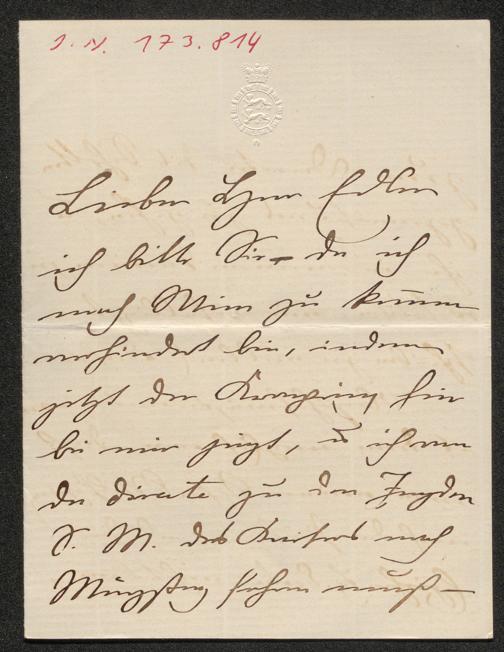 I. N. 173.814
Lieber Herr Edler
ich bitte Sie – da ich
nach Wien zu kommen
verhindert bin, indem
jetzt der Kronprinz hier
bei mir jagt, u ich von
da directe zu den Jagden
S. M. des Kaisers nach
Mürzsteg fahren muß –